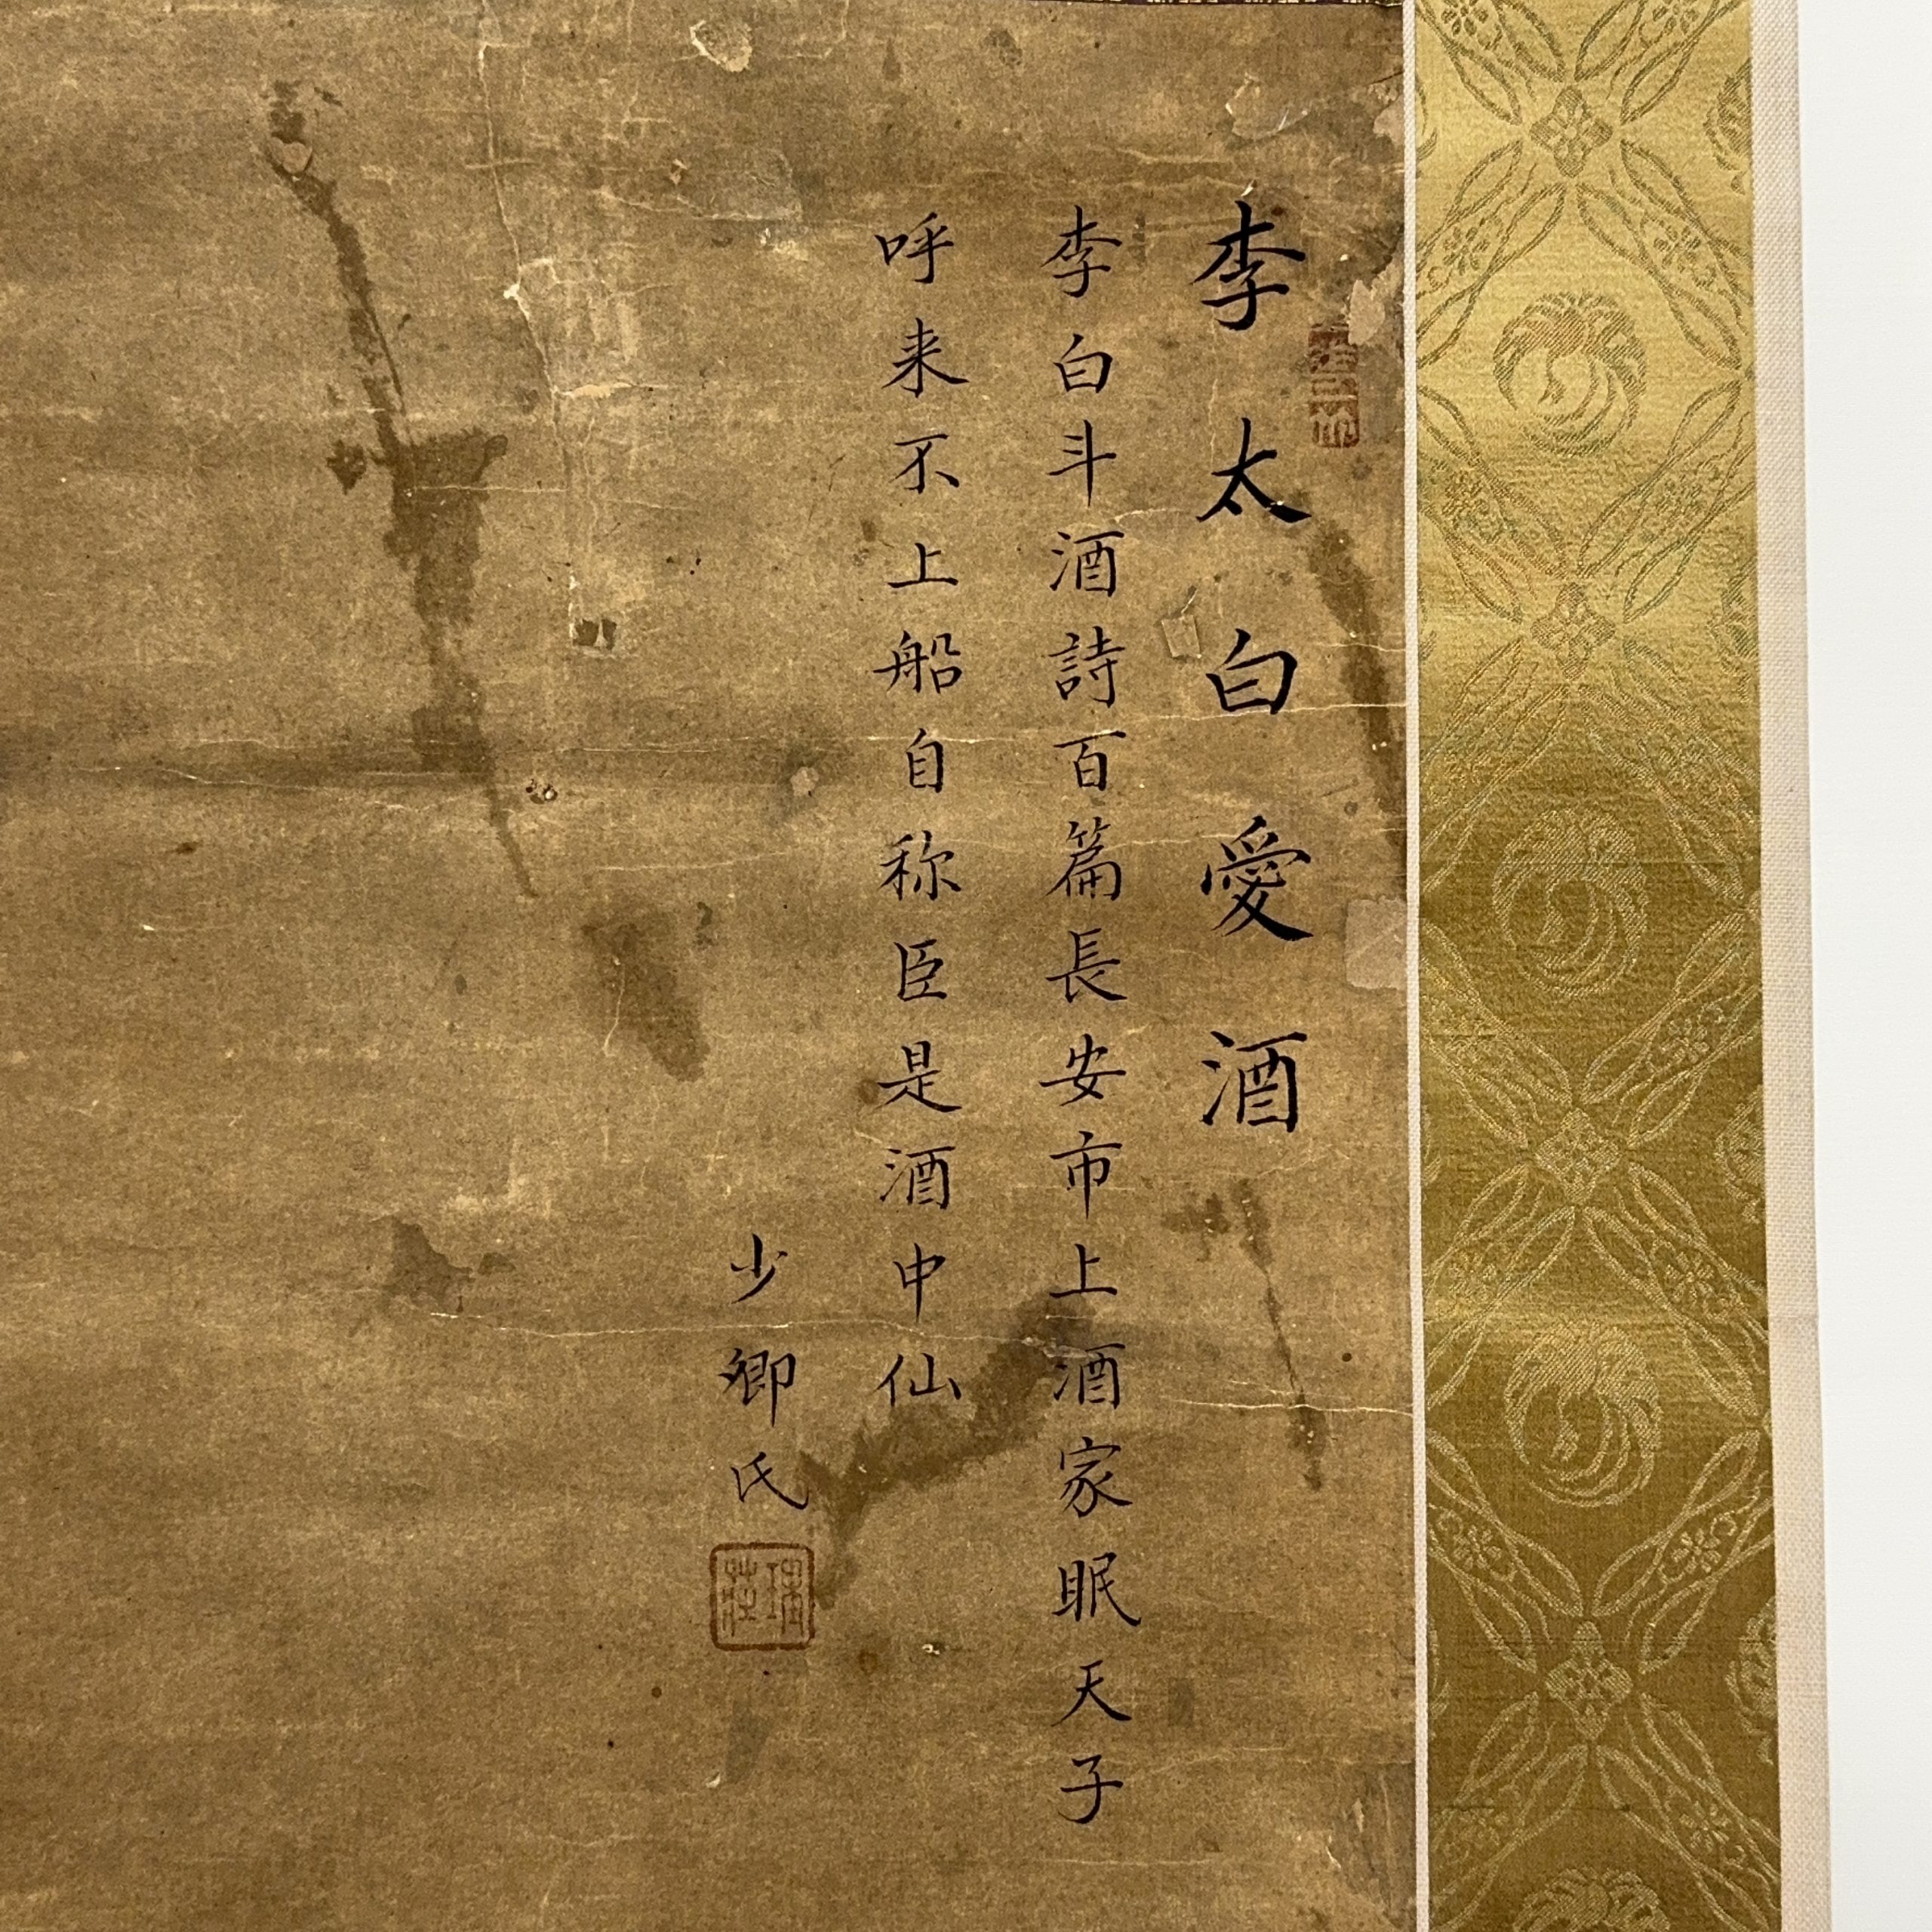 李太白愛酒
李白斗酒詩百篇長安市上酒家眠天子
呼来不上船自称臣是酒中仙
少卿氏